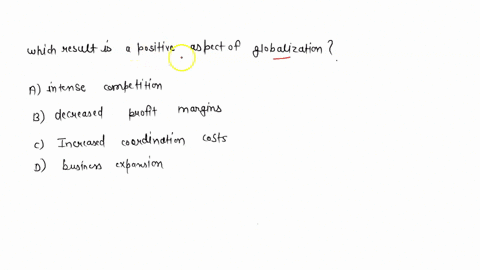 which result is a positive aspect of globalization?
A) intense competition
B) decreased profit margins
C) Increased coordination costs
D) business expansion